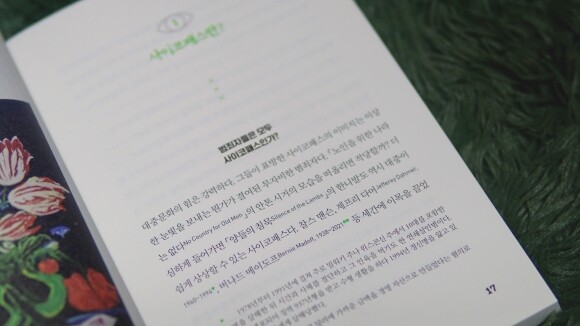 1
사이코패스란?
범죄자들은 모두
사이코패스인가?
대중문화의 힘은 강력하다. 그들이 표방한 사이코패스의 이미지는 이상
한 눈빛을 보내는 뭔가가 결여된 무자비한 범죄자다. 「노인을 위한 나라
는 없다No Country for Old Men」의 안톤 시거의 모습을 떠올리면 적당할까? 더
심하게 들어가면 「양들의 침묵Silence of the Lambs」의 한니발도 역시 대중이
쉽게 상상할 수 있는 사이코패스다. 찰스 맨슨, 제프리 다머Jeffrey Dahmer,
1960~1994 버나드 메이도프Bernie Madoff, 1938~2021 등 세간에 이목을 끌었
1978년부터 1991년에 걸쳐 주로 밀워키 주나 위스콘신 주에서 10대를 포함한
17